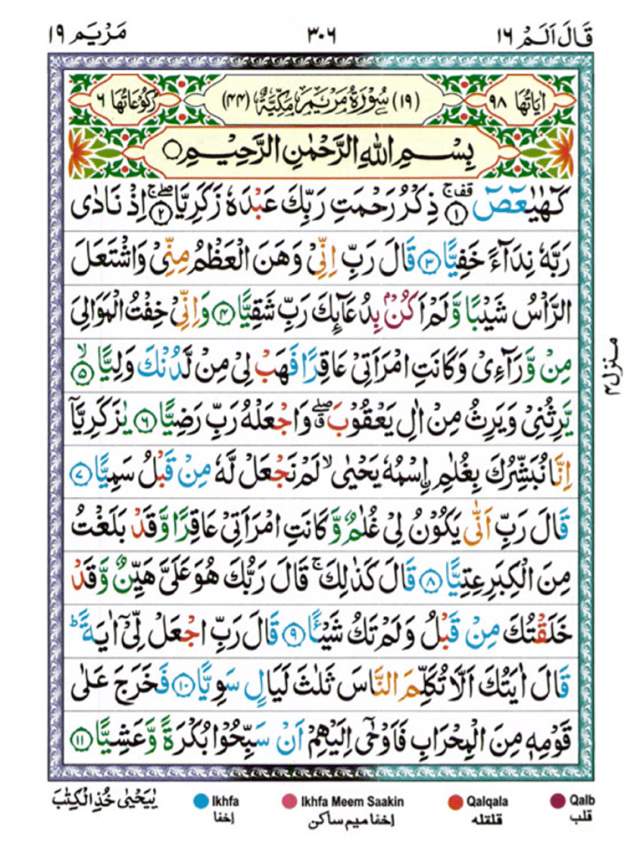 قَالَ اَلَمۡ ١٦ ٣٠٦ مَرۡيَم ١٩
اٰيَاتُهَا ٩٨ (١٩) سُوۡرَةُ مَرۡيَمَ مَكِّيَّةٌ (٤٤) رُكُوۡعَاتُهَا ٦
بِسۡمِ اللهِ الرَّحۡمٰنِ الرَّحِيۡمِ ۝
كٓهٰيٰعٓصٓ ۚ‏قف ﴿١﴾ ذِكۡرُ رَحۡمَتِ رَبِّكَ عَبۡدَهٗ زَكَرِيَّا ۖۚ ﴿٢﴾ اِذۡ نَادٰى
رَبَّهٗ نِدَآءً خَفِيًّا ﴿٣﴾ قَالَ رَبِّ اِنِّىۡ وَهَنَ الۡعَظۡمُ مِنِّىۡ وَاشۡتَعَلَ
الرَّاۡسُ شَيۡبًا وَّلَمۡ اَكُنۡۢ بِدُعَآئِكَ رَبِّ شَقِيًّا ﴿٤﴾ وَاِنِّىۡ خِفۡتُ الۡمَوَالِىَ
مِنۡ وَّرَآءِىۡ وَكَانَتِ امۡرَاَتِىۡ عَاقِرًا فَهَبۡ لِىۡ مِنۡ لَّدُنۡكَ وَلِيًّا ۙ ﴿٥﴾
يَّرِثُنِىۡ وَيَرِثُ مِنۡ اٰلِ يَعۡقُوۡبَ ۖ ق وَاجۡعَلۡهُ رَبِّ رَضِيًّا ﴿٦﴾ يٰزَكَرِيَّاۤ
اِنَّا نُبَشِّرُكَ بِغُلٰمِ ۨاسۡمُهٗ يَحۡيٰى ۙ لَمۡ نَجۡعَلۡ لَّهٗ مِنۡ قَبۡلُ سَمِيًّا ﴿٧﴾
قَالَ رَبِّ اَنّٰى يَكُوۡنُ لِىۡ غُلٰمٌ وَّكَانَتِ امۡرَاَتِىۡ عَاقِرًا وَّقَدۡ بَلَغۡتُ
مِنَ الۡكِبَرِ عِتِيًّا ﴿٨﴾ قَالَ كَذٰلِكَ ۚ قَالَ رَبُّكَ هُوَ عَلَىَّ هَيِّنٌ وَّقَدۡ
خَلَقۡتُكَ مِنۡ قَبۡلُ وَلَمۡ تَكُ شَيۡـًٔا ﴿٩﴾ قَالَ رَبِّ اجۡعَلۡ لِّىۡۤ اٰيَةً ؕ
قَالَ اٰيَتُكَ اَلَّا تُكَلِّمَ النَّاسَ ثَلٰثَ لَيَالٍ سَوِيًّا ﴿١٠﴾ فَخَرَجَ عَلٰى
قَوۡمِهٖ مِنَ الۡمِحۡرَابِ فَاَوۡحٰۤى اِلَيۡهِمۡ اَنۡ سَبِّحُوۡا بُكۡرَةً وَّعَشِيًّا ﴿١١﴾
منزل ٤
يٰيَحۡيٰى خُذِ الۡكِتٰبَ
Ikhfa Ikhfa Meem Saakin Qalqala Qalb
اخفا اخفا ميم ساكن قلقله قلب